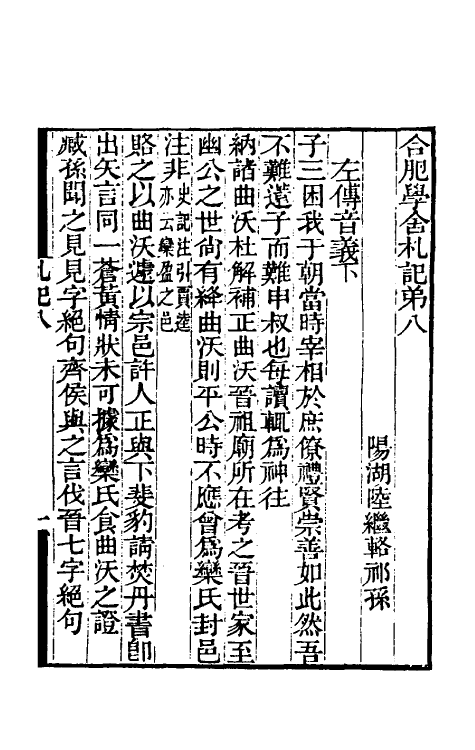 合肥學舍札記弟八
陽湖陸繼輅祁孫
左傳音義下
子三困我于朝當時宰相於庶僚禮賢崇善如此然吾
不難薳子而難申叔也每讀輒爲神往
納諸曲沃杜解補正曲沃晉祖廟所在考之晉世家至
幽公之世尙有絳曲沃則平公時不應曾爲欒氏封邑
注非史記注引賈逵亦云欒盈之邑
賂之以曲沃遽以宗邑許人正與下斐豹請焚丹書卽
出矢言同一蒼黃情狀未可據爲欒氏食曲沃之證
臧孫聞之見見字絕句齊侯與之言伐晉七字絕句
札記八
一